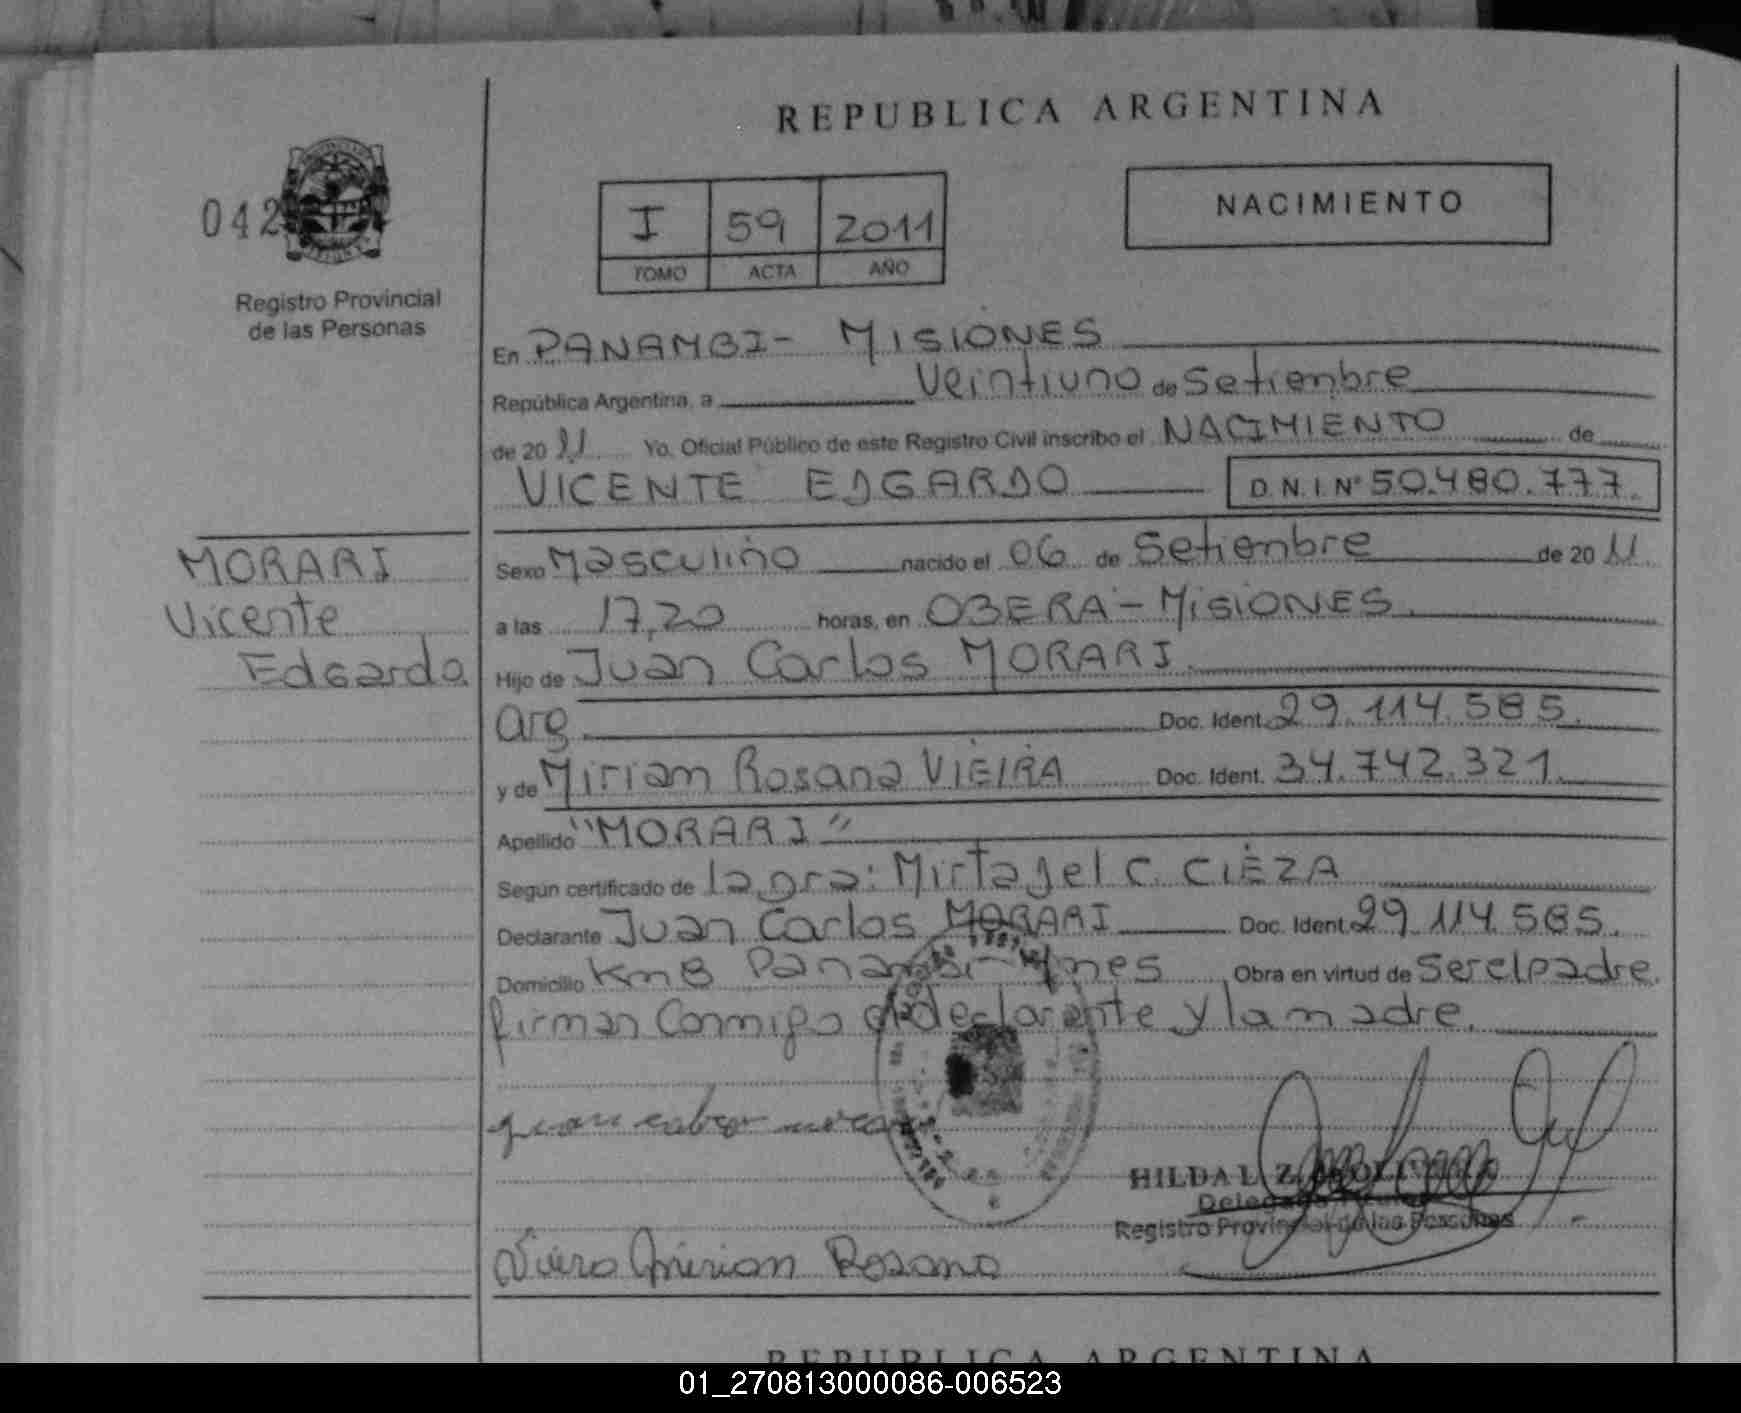 REPUBLICA ARGENTINA
042
Registro Provincial
de las Personas
I 59 2011
TOMO ACTA AÑO
NACIMIENTO
En PANAMBI - MISIONES
República Argentina, a Veintiuno de Setiembre
de 2011 Yo, Oficial Público de este Registro Civil inscribo el NACIMIENTO de
VICENTE EDGARDO D.N.I. Nº 50.480.777.
MORARI
Vicente
Edgardo
Sexo Masculino nacido el 06 de Setiembre de 2011.
a las 17,20 horas, en OBERA - MISIONES.
Hijo de Juan Carlos MORARI
Arg. Doc. Ident. 29.114.585.
y de Miriam Rosana VIEIRA Doc. Ident. 34.742.321.
Apellido "MORARI"
Según certificado de la Dra: Mirta del C. CIEZA
Declarante Juan Carlos MORARI Doc. Ident. 29.114.585.
Domicilio Km 8 Panambi - Mnes Obra en virtud de ser el padre.
firman conmigo el declarante y la madre.
HILDA L.
Registro Provincial de las Personas
Viera Mirian Rosana
REPUBLICA ARGENTINA
01_270813000086-006523